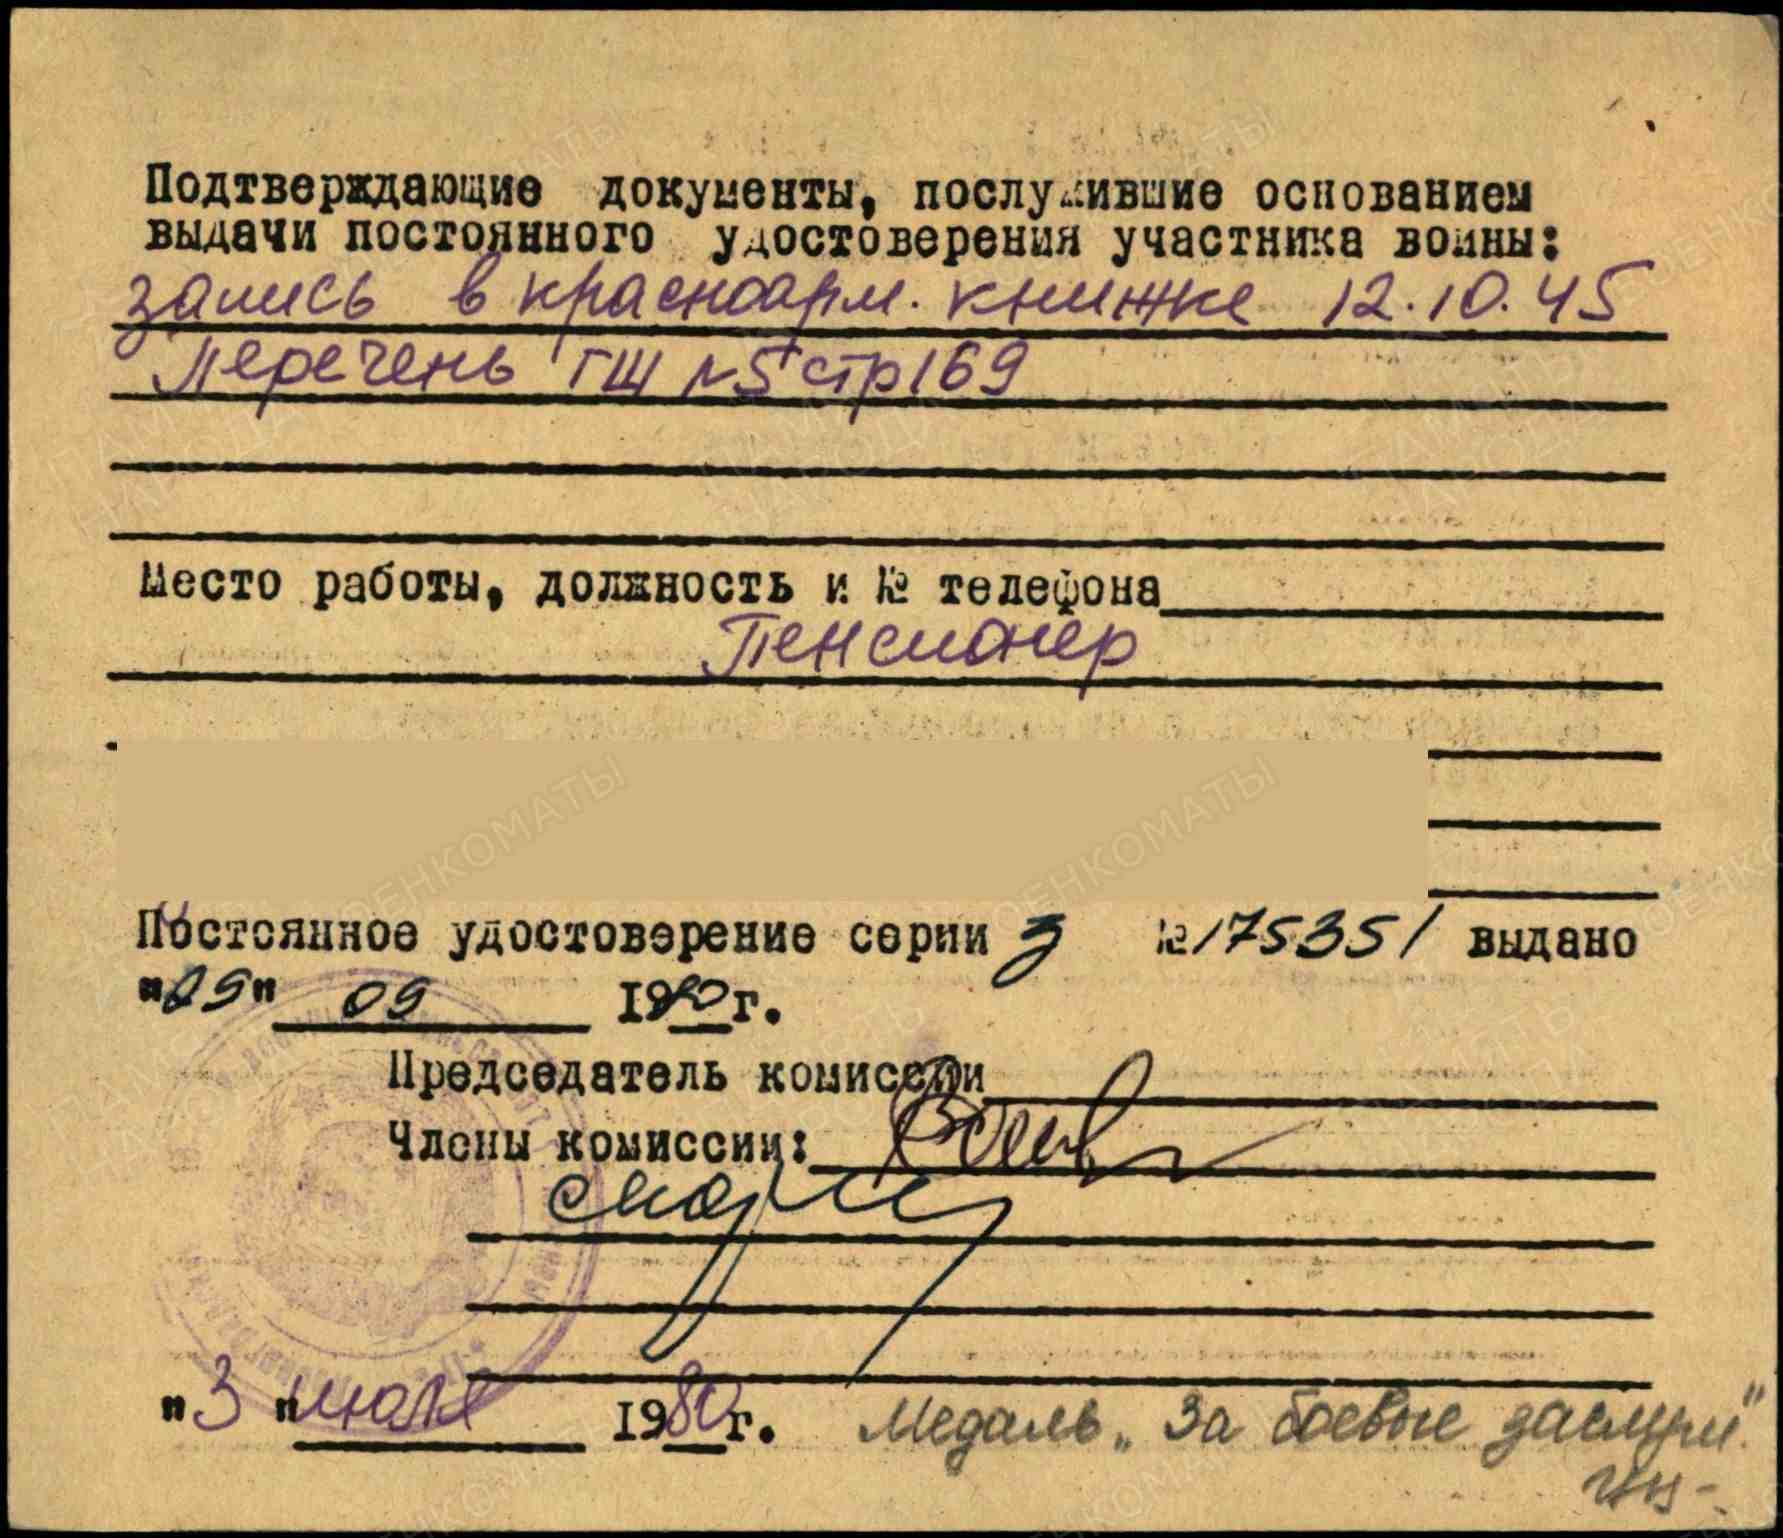 Подтверждающие документы, послужившие основанием
выдачи постоянного удостоверения участника войны:
запись в красноарм. книжке 12.10.45
Перечень ГШ №5 стр 169
Место работы, должность и № телефона
Пенсионер
Постоянное удостоверение серии З №175351 выдано
"09" 09 1980г.
Председатель комиссии
Члены комиссии:
"3" июля 1980г. Медаль „За боевые заслуги"